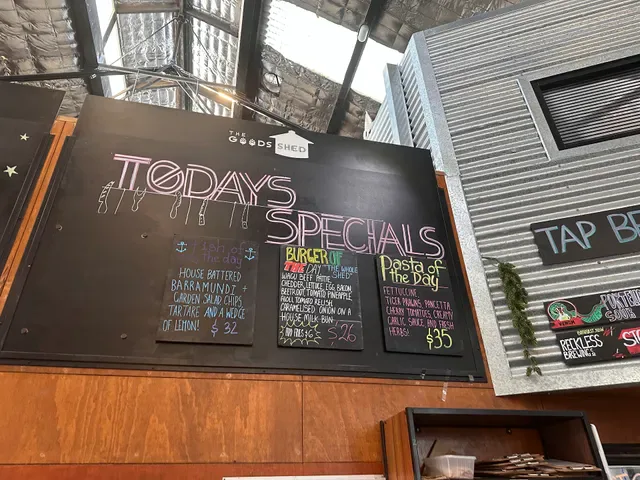 THE
GOODS SHED
TODAYS
SPECIALS
Fish of
the day
HOUSE BATTERED
BARRAMUNDI +
GARDEN SALAD CHIPS
TARTARE AND A WEDGE
OF LEMON! $32
BURGER OF
THE DAY "THE WHOLE
SHED"
WAGU BEEF PATTIE
CHEDDER, LETTUCE, EGG, BACON
BEETROOT, TOMATO, PINEAPPLE
AIOLI, TOMATO RELISH,
CARAMELISED ONION ON A
HOUSE MILK BUN
ADD FRIES $6
$26
Pasta of
the Day
FETTUCINE
TIGER PRAWNS, PANCETTA,
CHERRY TOMATOES, CREAMY
GARLIC SAUCE, AND FRESH
HERBS!
$35
TAP
RECKLESS
BREWING